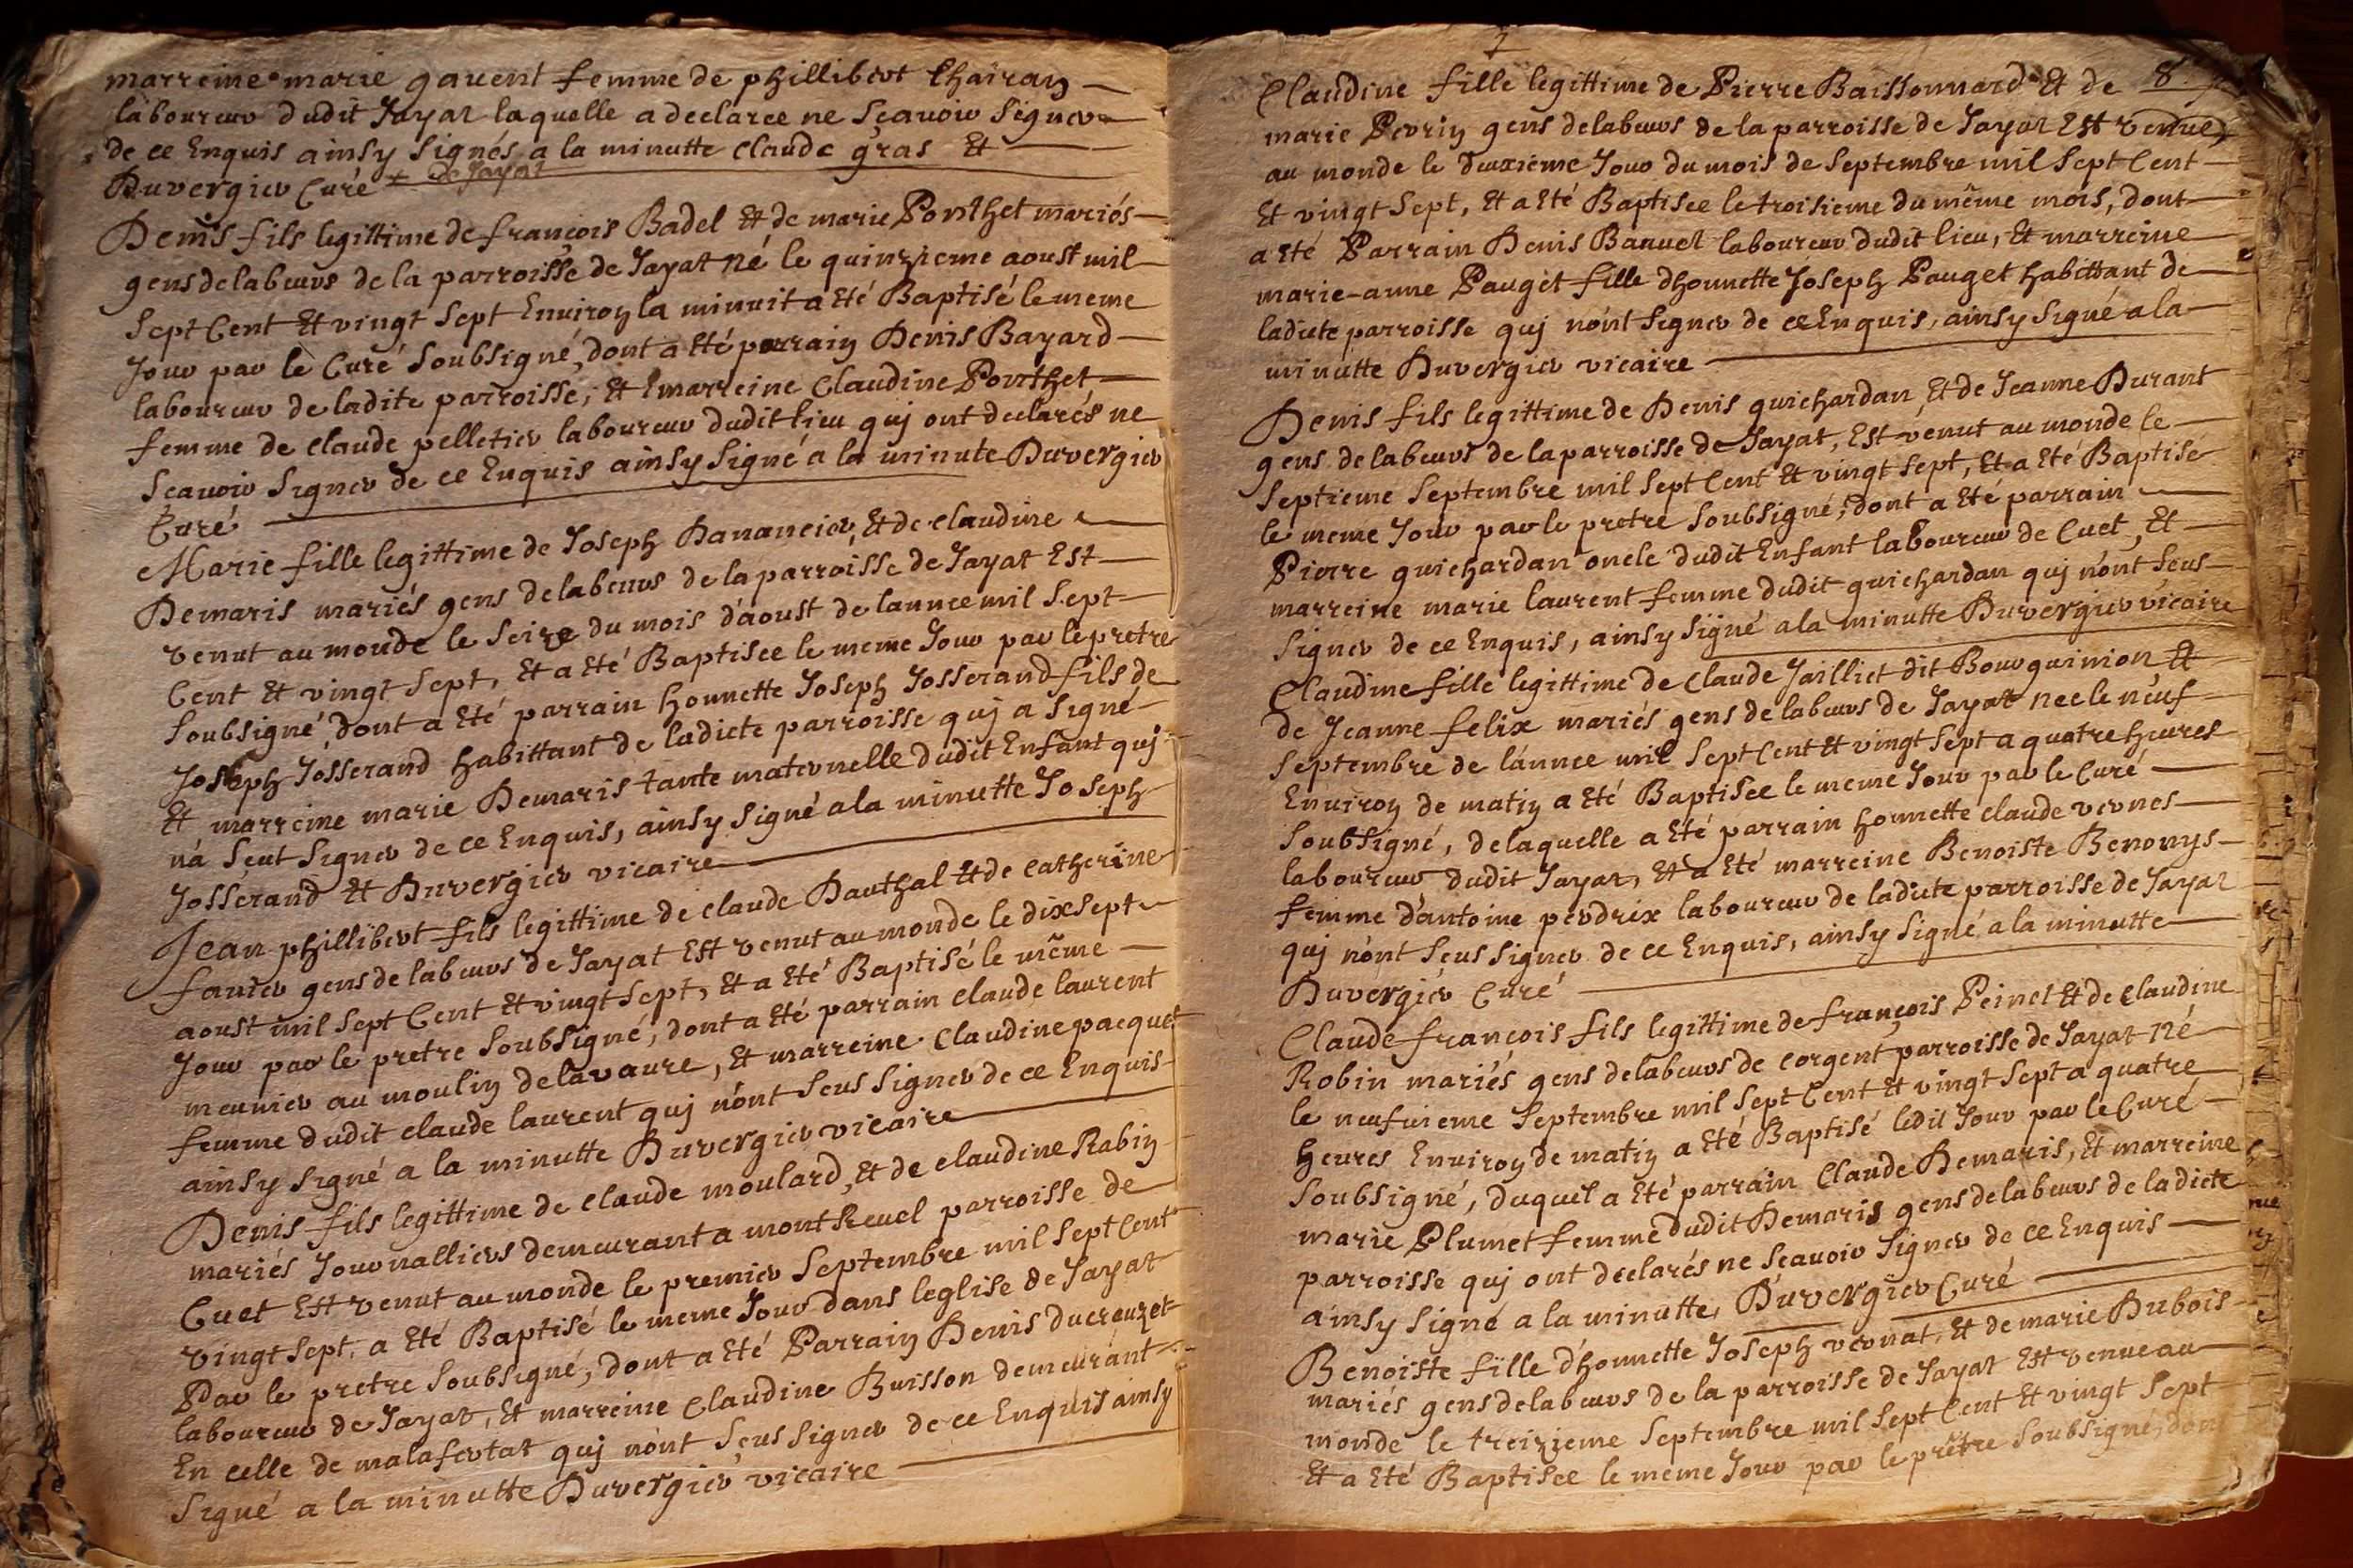 marreine marie gavent femme de phillibert Chairan
laboureur dudit Jayat laquelle a declaree ne Sçavoir Signer
de ce Enquis ainsy Signés a la minutte claude gras Et
Duvergier Curé de Jayat
Denis fils legittime de françois Badel Et de marie Ponthet mariés
gens de labeurs de la parroisse de Jayat né le quinzieme aoust mil
Sept Cent Et vingt Sept Environ la minuit a Eté Baptisé le meme
Jour par le Curé Soubsigné, dont a Eté parrain Denis Bayard
laboureur de ladite parroisse, Et marreine Claudine Ponthet
femme de claude pelletier laboureur dudit lieu quj ont declarés ne
Scavoir Signer de ce Enquis ainsy Signé a la minute Duvergier
Curé
Marie fille legittime de Joseph Dananeier, Et de claudine
Demaris mariés gens de labeurs de la parroisse de Jayat Est
venut au monde le Seize du mois d'aoust de lannee mil Sept
Cent Et vingt Sept, Et a Eté Baptisee le meme Jour par le pretre
Soubsigné, dont a Eté parrain honnette Joseph Josserand fils de
Joseph Josserand habittant de ladicte parroisse quj a Signé
Et marreine marie Demaris tante maternelle dudit Enfant quj
n'a Seut Signer de ce Enquis, ainsy Signé a la minutte Joseph
Josserand Et Duvergier vicaire
Jean phillibert fils legittime de claude Dauthal Et de catherine
favier gens de labeurs de Jayat Est venut au monde le dix Sept
aoust mil Sept Cent Et vingt Sept, Et a Eté Baptisé le même
Jour par le pretre Soubsigné, dont a Eté parrain claude laurent
meunier au moulin delavaure, Et marreine Claudine pacquet
femme dudit claude laurent quj n'ont Seus Signer de ce Enquis
ainsy Signé a la minutte Duvergier vicaire
Denis fils legittime de claude moulard, Et de claudine Rabin
mariés Journalliers demeurant a montRevel parroisse de
Cuet Est venut au monde le premier Septembre mil Sept Cent
vingt Sept, a Eté Baptisé le meme Jour dans leglise de Jayat
Par le pretre Soubsigné, dont a Eté Parrain Denis ducreuzet
laboureur de Jayat, Et marreine Claudine Buisson demeurant
En celle de malafertat quj n'ont Seus Signer de ce Enquis ainsy
Signé a la minutte Duvergier vicaire
8
Claudine fille legittime de Pierre Baissonnard Et de
marie Perrin gens de labeurs de la parroisse de Jayat Est venue
au monde le deuxieme Jour du mois de Septembre mil Sept Cent
Et vingt Sept, Et a Eté Baptisee le troisieme du même mois, dont
a Eté Parrain Denis Banuel laboureur dudit lieu, Et marreine
marie-anne Pauget fille dhonnette Joseph Pauget habittant de
ladicte parroisse quj n'ont Signer de ce Enquis, ainsy Signé a la
minutte Duvergier vicaire
Denis fils legittime de Denis guichardan, Et de Jeanne Durant
gens de labeurs de la parroisse de Jayat, Est venut au monde le
Septieme Septembre mil Sept Cent Et vingt Sept, Et a Eté Baptisé
le meme Jour par le pretre Soubsigné, dont a Eté parrain
Pierre guichardan oncle dudit Enfant laboureur de Cuet, Et
marreine marie laurent femme dudit guichardan quj n'ont Seus
Signer de ce Enquis, ainsy Signé a la minutte Duvergier vicaire
Claudine fille legittime de Claude Jailliet dit Bourguinion Et
de Jeanne felix mariés gens de labeurs de Jayat nee le neuf
Septembre de l'annee mil Sept Cent Et vingt Sept a quatre heures
Environ de matin a Eté Baptisee le meme Jour par le Curé
Soubsigné, delaquelle a Eté parrain honnette claude vernes
laboureur dudit Jayat, Et a Eté marreine Benoiste Benonys
femme d'antoine perdrix laboureur de ladicte parroisse de Jayat
quj n'ont Seus Signer de ce Enquis, ainsy Signé a la minutte
Duvergier Curé
Claude françois fils legittime de françois Peinet Et de Claudine
Robin mariés gens de labeurs de corgent parroisse de Jayat né
le neufvieme Septembre mil Sept Cent Et vingt Sept a quatre
heures Environ de matin a Eté Baptisé ledit Jour par le Curé
Soubsigné, duquel a Eté parrain Claude Demaris, Et marreine
marie Plumet femme dudit Demaris gens de labeurs de ladicte
parroisse quj ont declarés ne Scavoir Signer de ce Enquis
ainsy Signé a la minutte, Duvergier Curé
Benoiste fille d'honnette Joseph vernat, Et de marie Dubois
mariés gens de labeurs de la parroisse de Jayat Est venue au
monde le treizieme Septembre mil Sept Cent Et vingt Sept
Et a Eté Baptisee le meme Jour par le prêtre Soubsigné, dont